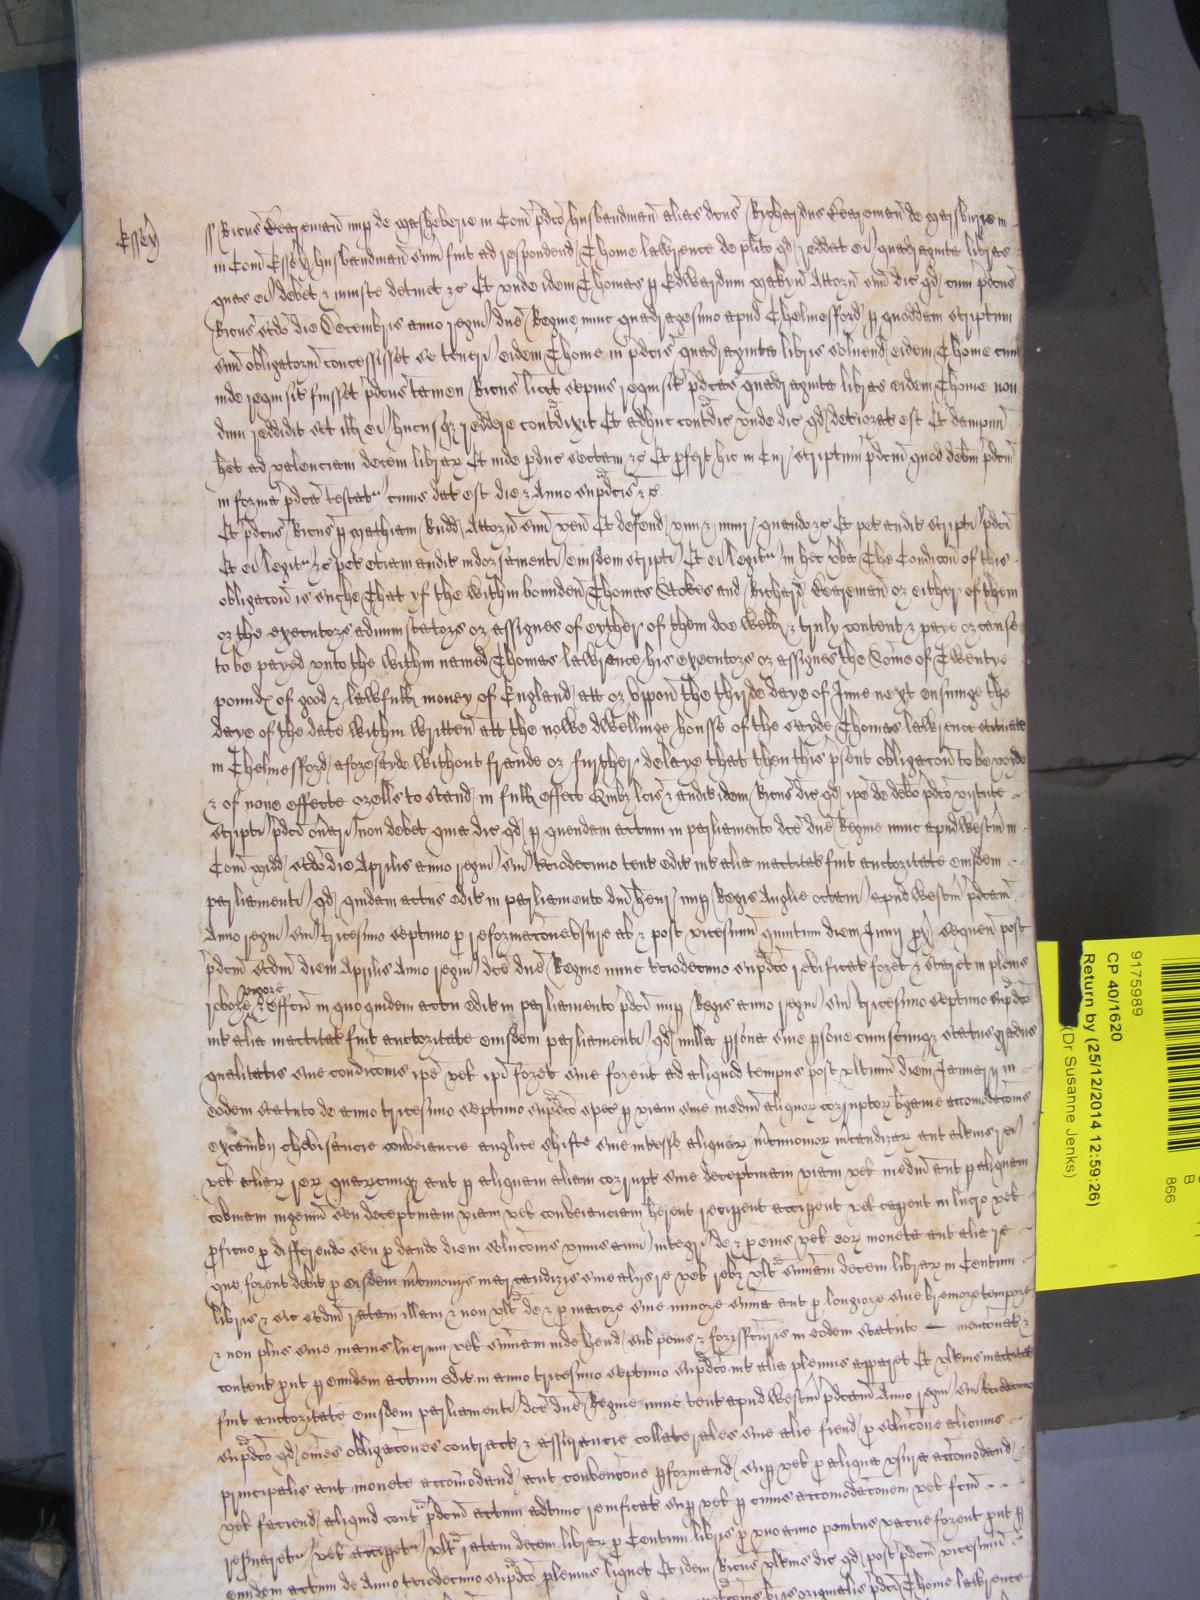 Essex
Ricus Veareman nup de Masheberie in Com pdco husbandman alias dcus Richardus Veareman de Massburie in
in Com Essex husbandman sum fuit ad respondend Thome Lawrence de plito qd reddat ei quadraginta libras
quas ei debet & iniuste detinet &c Et unde idem Thomas p Edwardum Mabyn Attorn suu dic qd cum pdcus
Ricus scdo die Decembris anno regni dne Regine nunc quadragesimo apud Chelmesford p quoddam scriptum
suu obligatoriu concessisset se teneri eidem Thome in pdcis quadraginta libris solvend eidem Thome cum
inde requisit fuisset pdcus tamen Ricus licet sepius requisit pdcas quadraginta libras eidem Thome non
dum reddidit set ill ei hucusqz reddere contradixit Et adhuc contradic unde dic qd deteriorat est Et dampnu
het ad valenciam decem librar Et inde pduc sectam &c Et pfert hic in Cur scriptum pdcm quod debm pdcm
in forma pdca testatr cuius dat est die & Anno supradcis &c
Et pdcus Ricus p Mathiam Rudd Attorn suu ven Et defend vim & iniur quando &c Et pet audit scripti pdci
Et ei legitr &c pet etiam audit indorsamenti eiusdem scripti Et ei legitr in hec vba The Condicon of this
obligacon is suche That yf the within bounden Thomas Stokes and Richard Veareman or either of them
or the executors administators or assignes of eyther of them doe well & truly content & paye or cause
to be payed unto the within named Thomas Lawrence his executors or assignes the Some of Twentye
pounds of good & lawfull money of England att or uppon the thirde daye of June next ensuinge the
daye of the date within written att the nowe dwellinge housse of the sayde Thomas Lawrence scituate
in Chelmesford aforesayde without fraude or further delaye that then this psent obligacon to be voyde
& of none effecte or ells to stand in full effect Quibz lcis & audit idem Ricus dic qd ipe de debo pdco virtute
scripti pdci onari non debet quia dic qd p quendam actum in parliamento dce dne Regine nunc apud Westm in
Com Midd scdo die Aprilis anno regni sui tciodecimo tent edit int alia inactitat fuit auctoritate eiusdem
parliamenti qd quidam actus edit in parliamento dni Henr nup Regis Anglie octavi apud Westm pdcam
Anno regni sui tricesimo septimo p reformacoe usure ab & post vicesimu quintum diem Junij px sequen post
pdcm scdm diem Aprilis Anno regni dce dne Regine nunc tciodecimo supradco revificat foret & staret in plenis
robore vigore & effectu in quo quidem actu edit in parliamento pdci nup Regis anno regni sui tricesimo septimo supradco
int alia inactitat fuit auctoritate eiusdem parliamenti qd nulla psona sive psone cuiuscunqz status gradus
qualitatis sive condicionis ipe vel ipi foret sive forent ad aliquod tempus post ultimu diem Januarij in
eodem statuto de anno tricesimo septimo supradco spec p viam sive mediu aliquor corruptor bgane accomodacois
excambij chevisancie conveiancie anglice shifte sive interesse aliquor mcimonior mcandizar aut altius rei
vel aliar rer quarcunqz aut p aliquam aliam corrupt sive deceptivam viam vel mediu aut p aliquam
covinam ingeniu seu deceptivam viam vel conveianciam herent reciperent acciperent vel caperent in lucro vel
pficuo p differendo seu p dando diem solucois unius anni integri de & p eius vel eor moneta aut alia re
que forent debit p eisdem mcimonijs marcandizis sive alijs re vel rebz ultra summam decem librar in Centum
libris & sic scdm ratam illam & non ultra de & p maiore sive minore summa aut p longiore sive breviore tempore
& non plus sive maius lucrum vel summam inde hend sub penis & forisfcuris in eodem statuto mencionat &
content put p eundem actum edit in anno tricesimo septimo supradco int alia plenius apparet Et ulterius inactitat
fuit auctoritate eiusdem parliamenti dce dne Regine nunc tent apud Westm pdcam Anno regni sui tciodecimo
supradco qd omes obligacoes contract & assurancie collaterales sive alie fiend p solucone alicuius
principalis aut monete accomodand aut convencoe pformand sup vel p aliqua usura accomodand
vel faciend aliquid contra pdcm actum adtunc revificat sup vel p cuius accomodacoem vel fcm
resvaretr vel accipetr ultra ratam decem librar p Centum libris p uno anno penitus vacue forent put p
eundem actum de Anno tciodecimo supradco plenius liquet Et idem Ricus ulterius dic qd post pdcm vicesimu
brevis originalis pdci Thome Lawrence
9175989
CP 40/1620
Return by (25/12/2014 12:59:26)
(Dr Susanne Jenks)
B
866